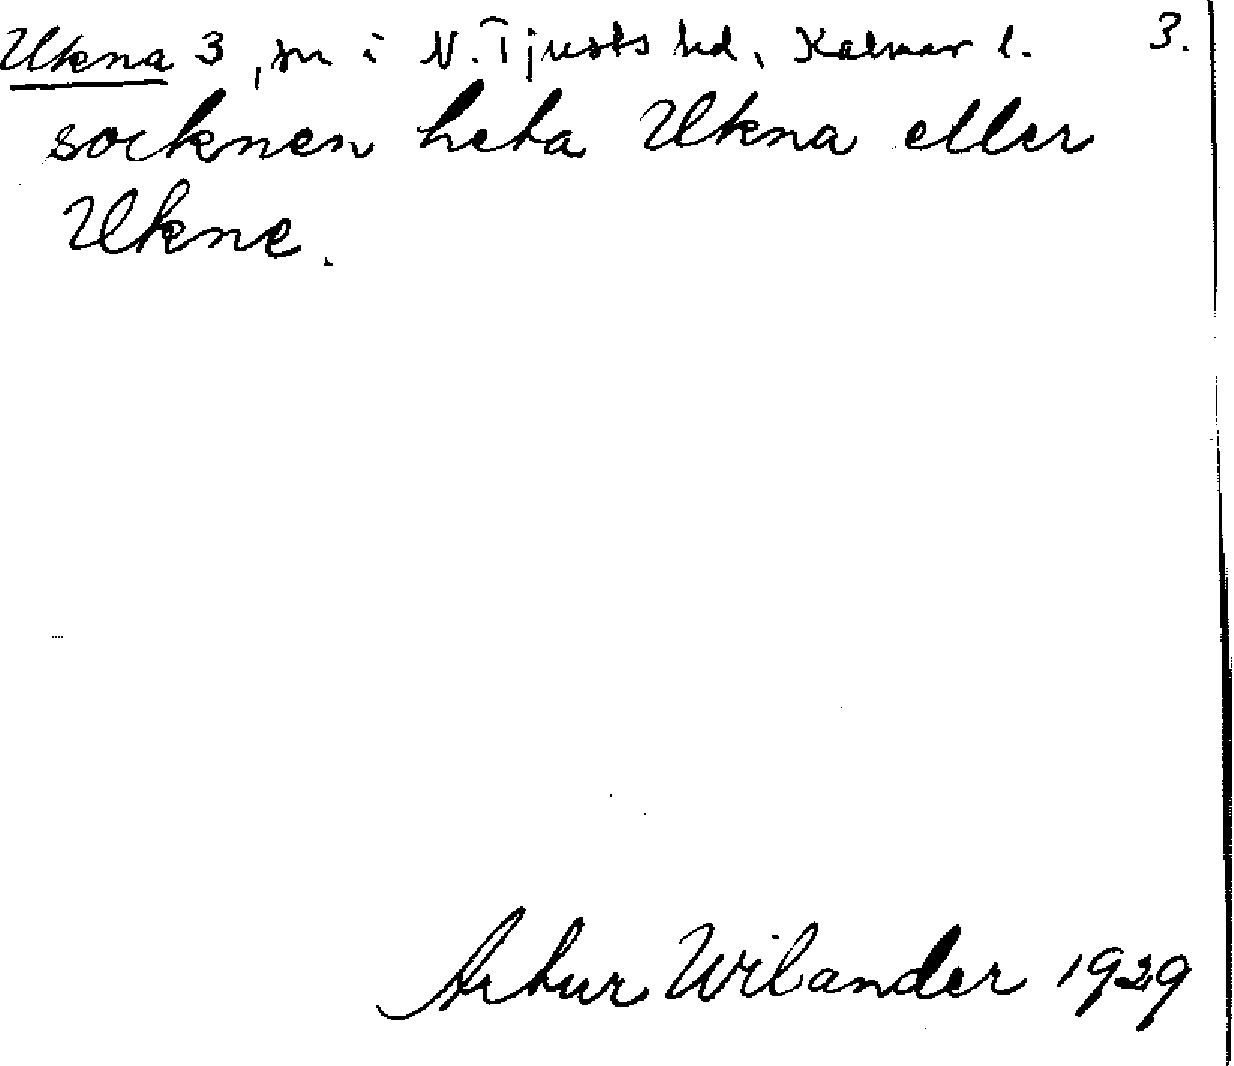 Ukna 3, sn i N. Tjusts hd, Kalmar l. 3.
socknen heta Ukna eller
Ukne.
Artur Wilander 1929